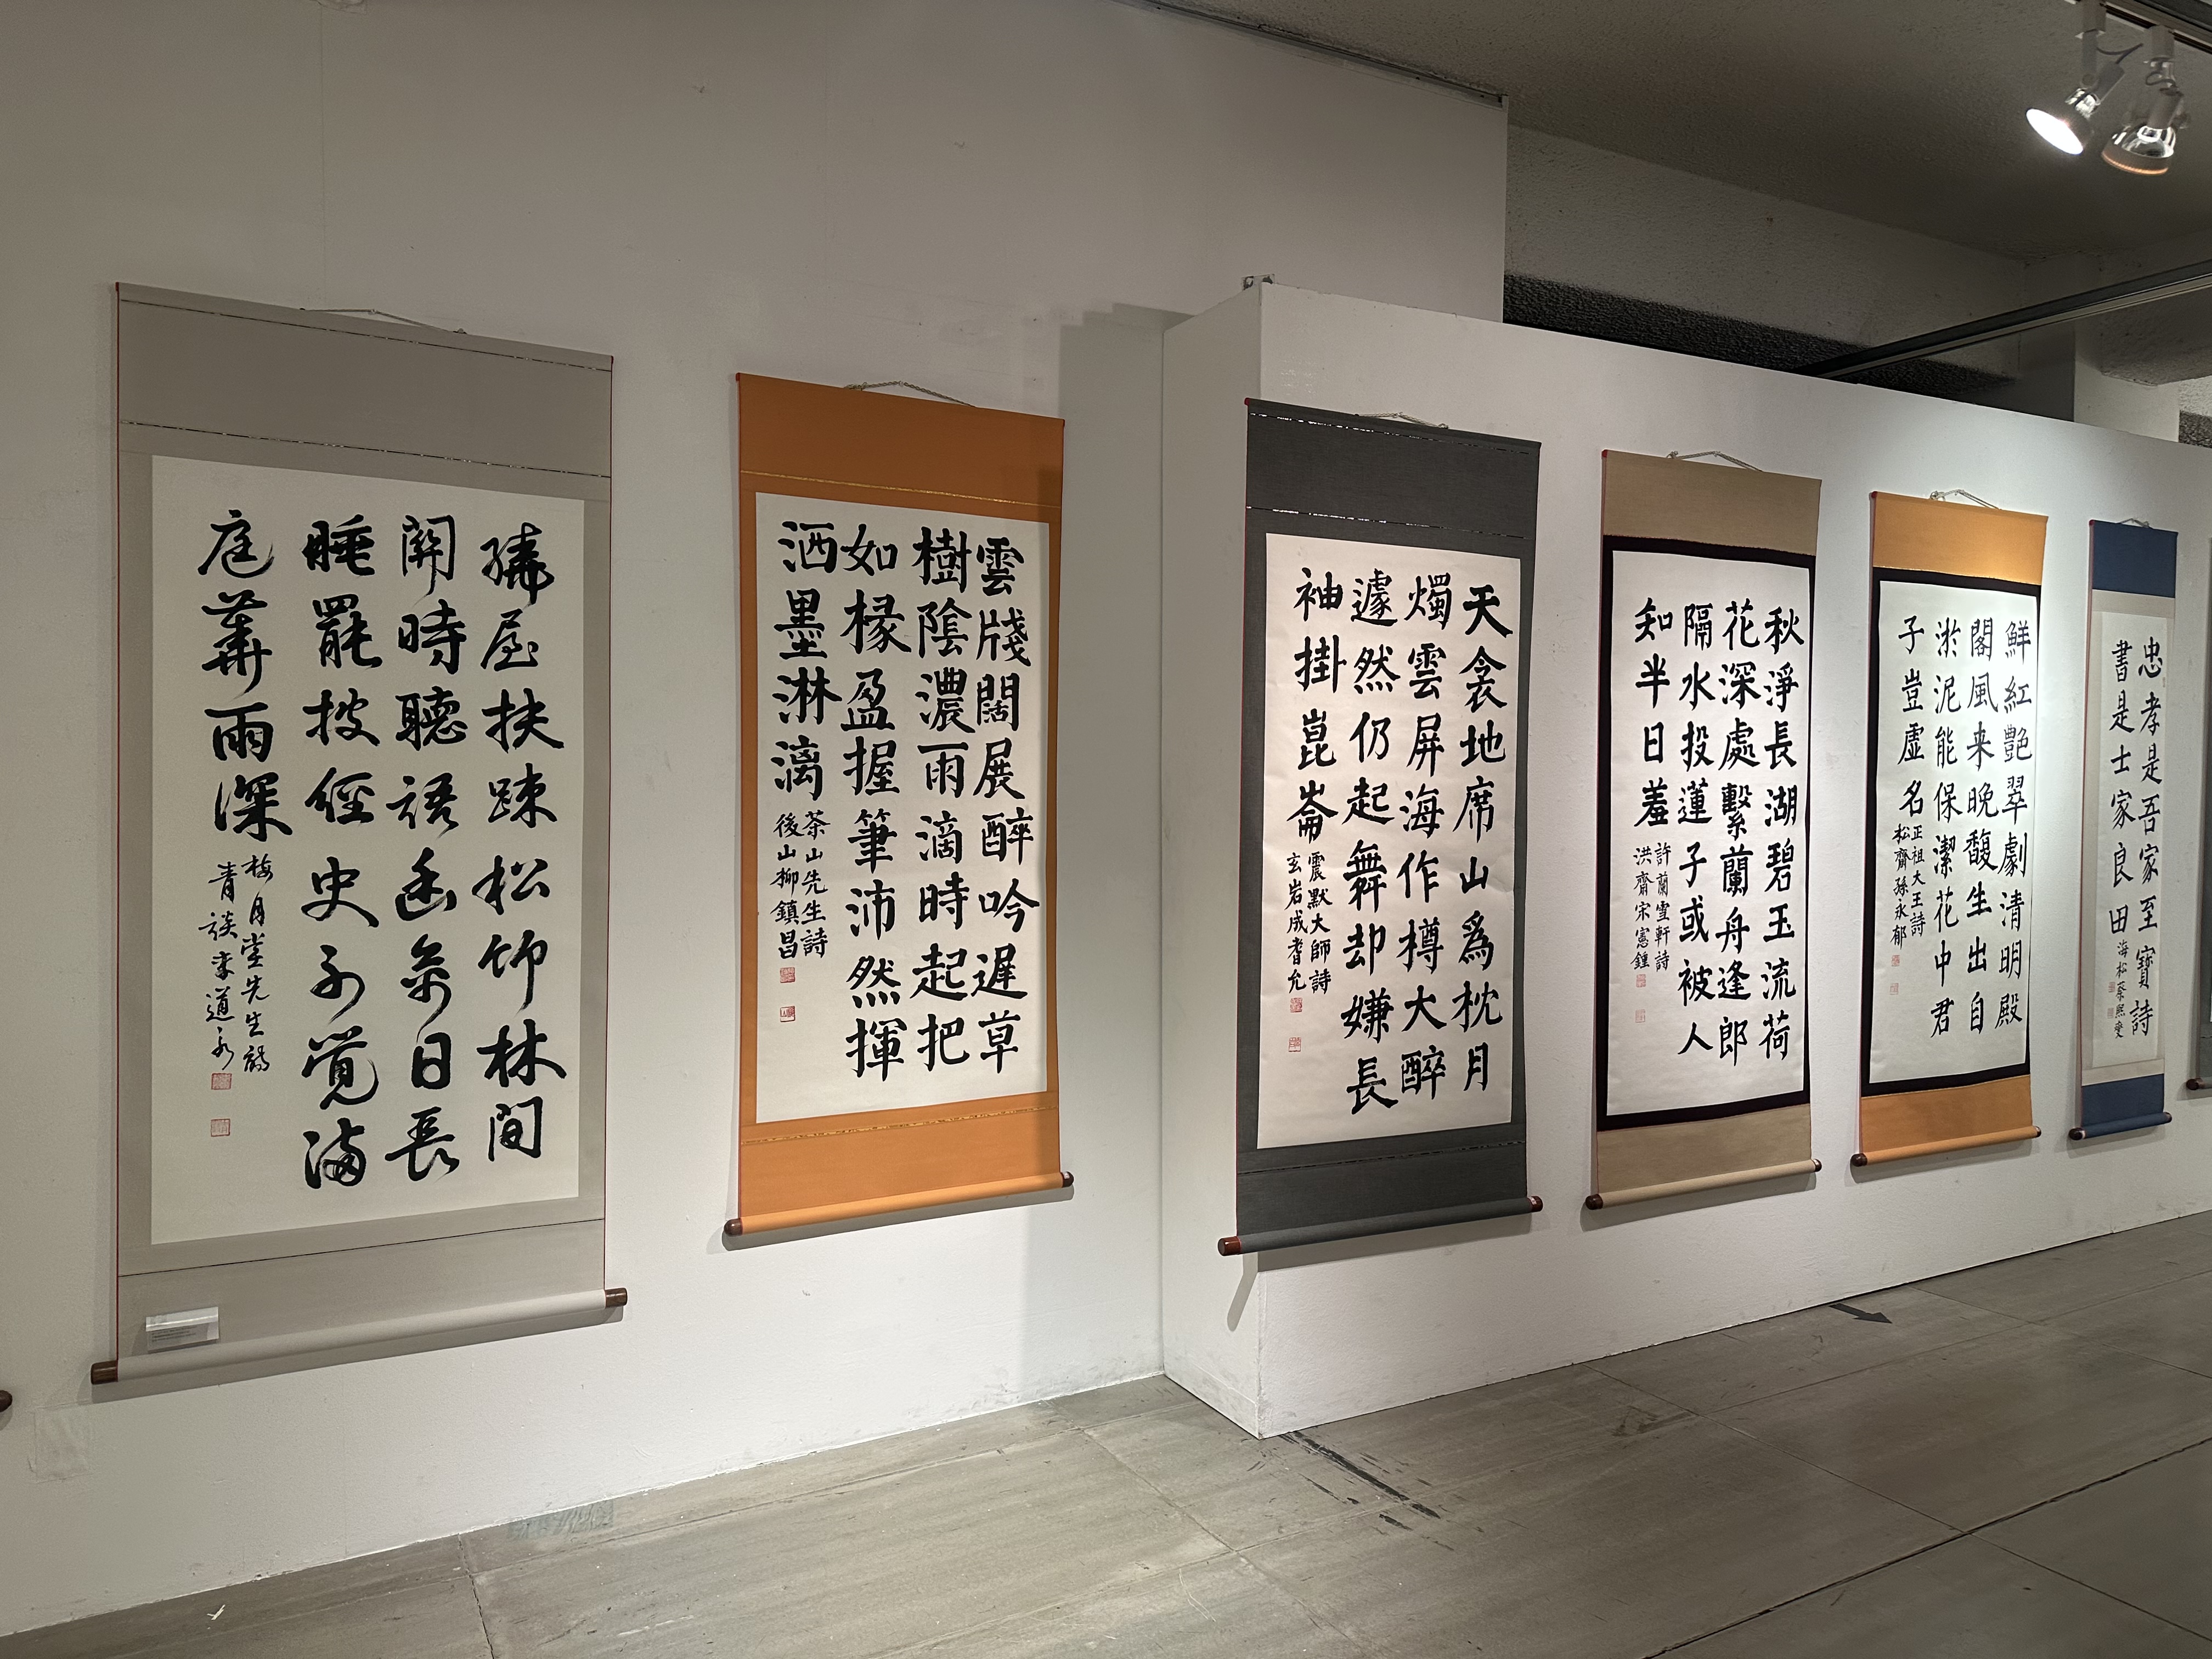 繞屋扶踈松竹林間
関時聽語幽禽日長
睡罷披經史不覚滿
庭華雨深
梅月堂先生詩
青談宋道永
雲牋闊展醉吟遲草
樹陰濃雨滴時起把
如椽盈握筆沛然揮
洒墨淋漓
茶山先生詩
後山柳鎭昌
天衾地席山爲枕月
燭雲屏海作樽大醉
遽然仍起舞却嫌長
袖掛崑崙
震默大師詩
玄岩成耆允
秋淨長湖碧玉流荷
花深處繫蘭舟逢郎
隔水投蓮子或被人
知半日羞
許蘭雪軒詩
洪齋宋憲鍾
鮮紅艶翠劇清明殿
閣風来晩馥生出自
淤泥能保潔花中君
子豈虛名
正祖大王詩
松齋孫永郁
忠孝是吾家至寶詩
書是士家良田
海松蔡熙燮